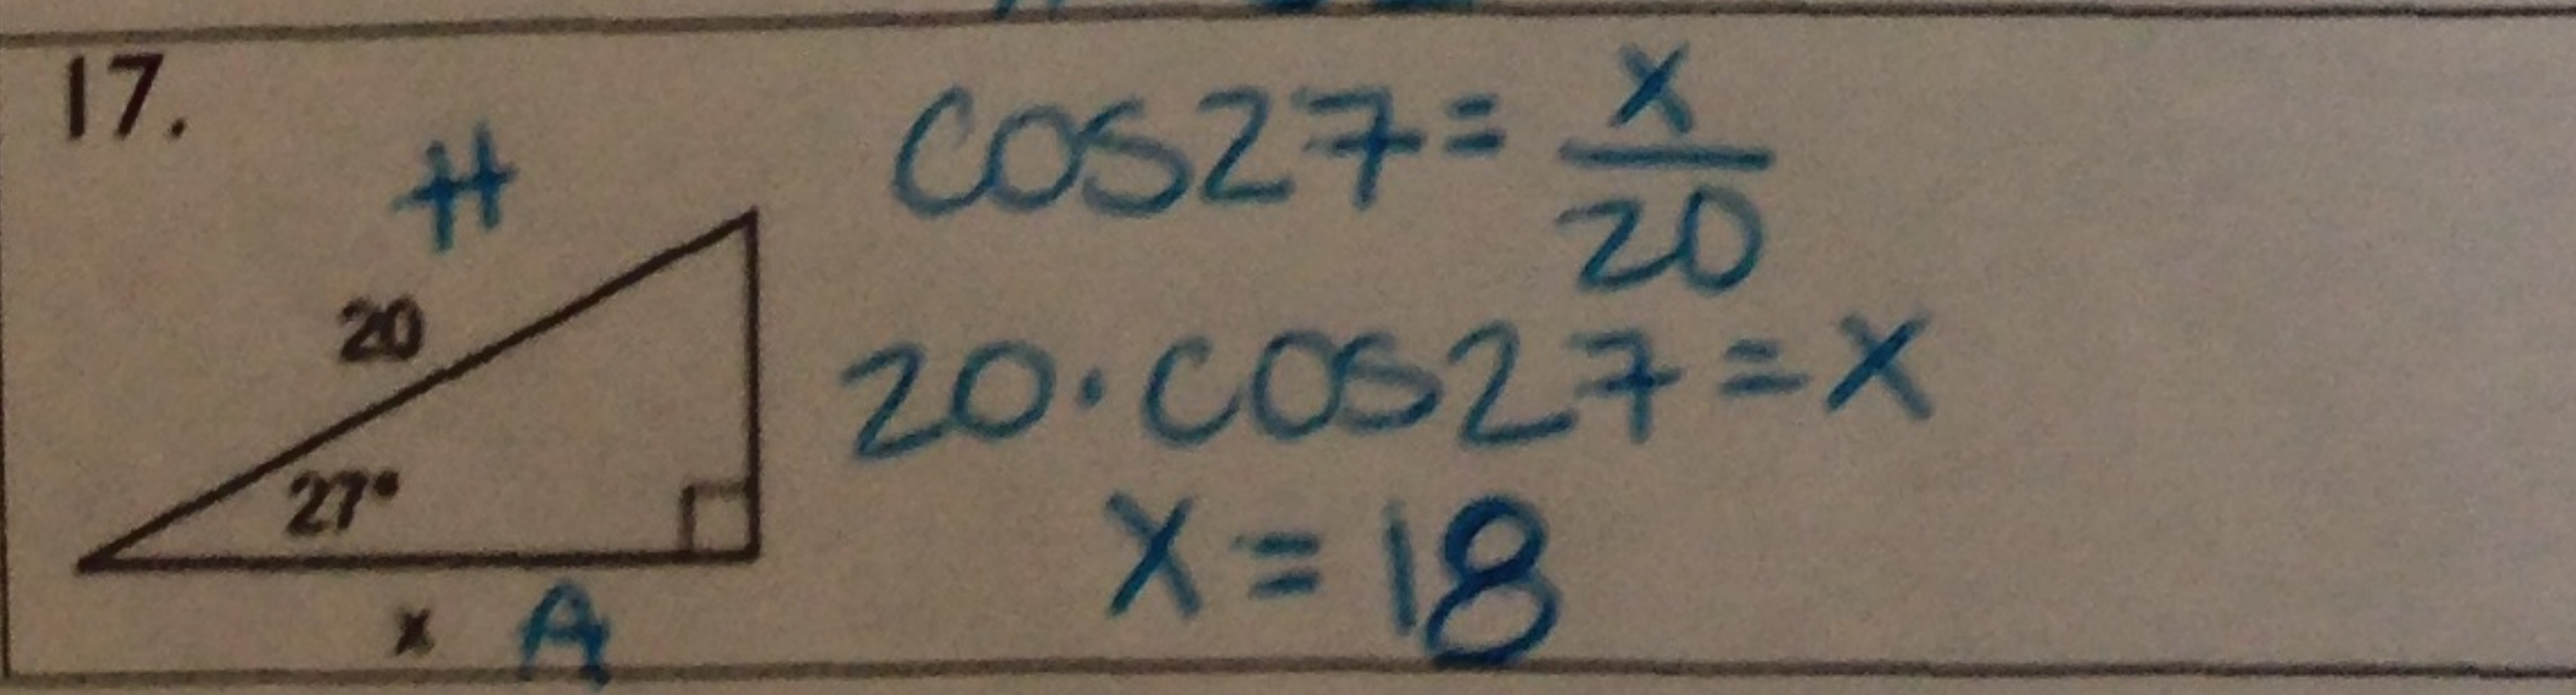 17.
H
20
27°
x A
cos27 = x/20
20·cos27 = x
x = 18